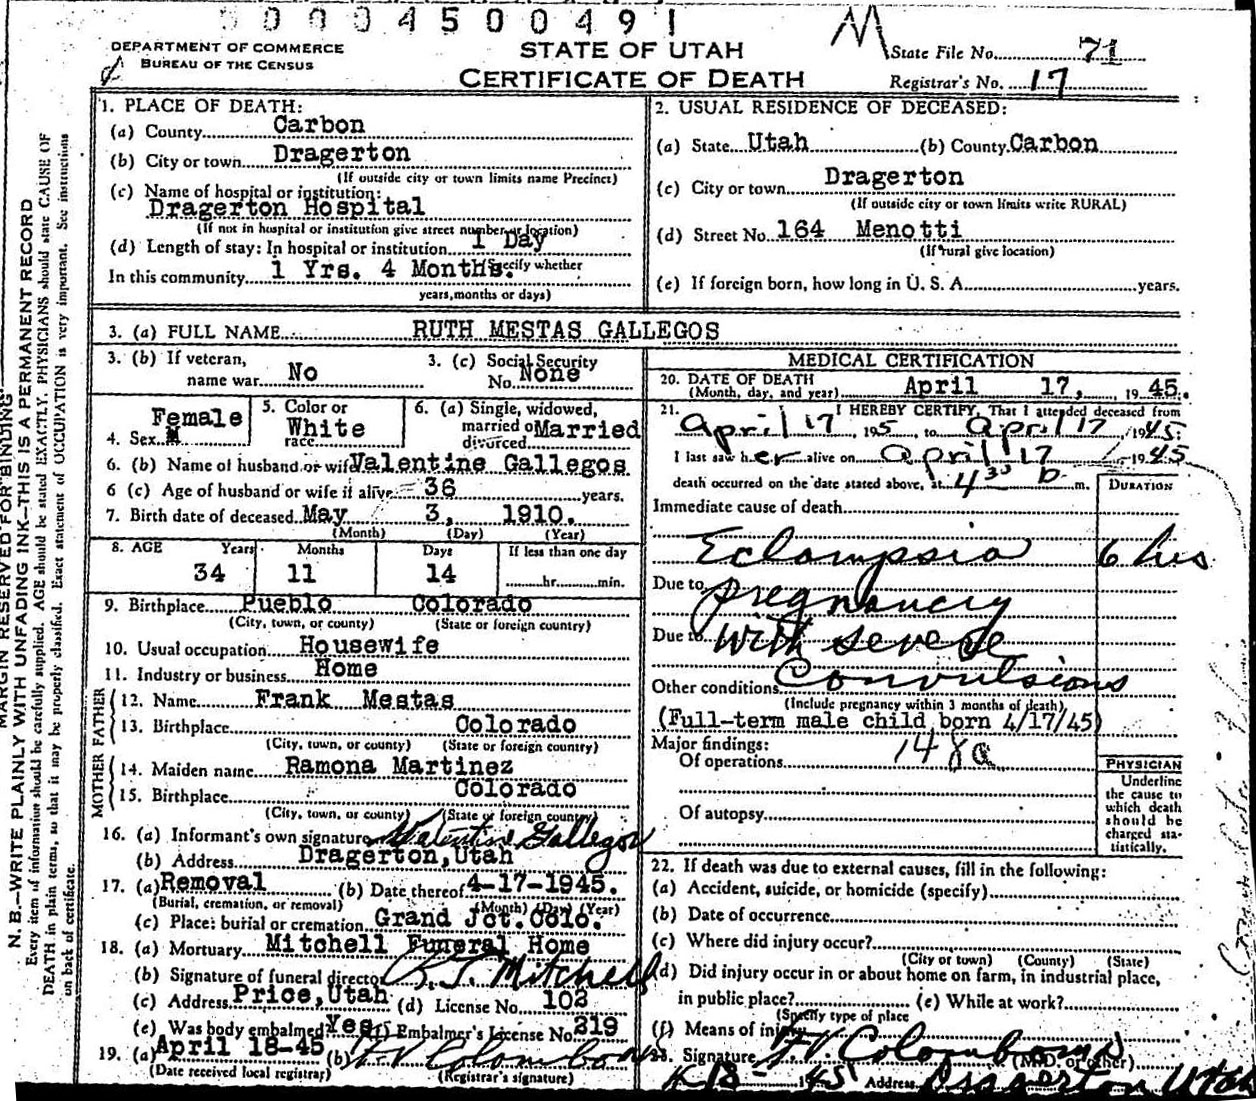 0 0 0 4 5 0 0 4 9 1
DEPARTMENT OF COMMERCE
BUREAU OF THE CENSUS
STATE OF UTAH
CERTIFICATE OF DEATH
M
State File No. 71
Registrar's No. 17
MARGIN RESERVED FOR BINDING
N. B.—WRITE PLAINLY WITH UNFADING INK—THIS IS A PERMANENT RECORD
Every item of information should be carefully supplied. AGE should be stated EXACTLY. PHYSICIANS should state CAUSE OF
DEATH in plain terms, so that it may be properly classified. Exact statement of OCCUPATION is very important. See instructions
on back of certificate.
1. PLACE OF DEATH:
(a) County Carbon
(b) City or town Dragerton
(If outside city or town limits name Precinct)
(c) Name of hospital or institution:
Dragerton Hospital
(If not in hospital or institution give street number or location)
(d) Length of stay: In hospital or institution 1 Day
(Specify whether
In this community 1 Yrs. 4 Months.
years, months or days)
2. USUAL RESIDENCE OF DECEASED:
(a) State Utah (b) County Carbon
(c) City or town Dragerton
(If outside city or town limits write RURAL)
(d) Street No. 164 Menotti
(If rural give location)
(e) If foreign born, how long in U. S. A. years.
3. (a) FULL NAME RUTH MESTAS GALLEGOS
3. (b) If veteran, name war No
3. (c) Social Security No. None
4. Sex Female M
5. Color or race White
6. (a) Single, widowed, married or divorced Married
6. (b) Name of husband or wife Valentine Gallegos
6 (c) Age of husband or wife if alive 36 years.
7. Birth date of deceased May 3, 1910.
(Month) (Day) (Year)
8. AGE Years Months Days If less than one day
34 11 14 hr. min.
9. Birthplace Pueblo Colorado
(City, town, or county) (State or foreign country)
10. Usual occupation Housewife
11. Industry or business Home
FATHER
12. Name Frank Mestas
13. Birthplace Colorado
(City, town, or county) (State or foreign country)
MOTHER
14. Maiden name Ramona Martinez
15. Birthplace Colorado
(City, town, or county) (State or foreign country)
16. (a) Informant's own signature Valentine Gallegos
(b) Address Dragerton, Utah
17. (a) Removal (b) Date thereof 4-17-1945.
(Burial, cremation, or removal) (Month) (Day) (Year)
(c) Place: burial or cremation Grand Jct. Colo.
18. (a) Mortuary Mitchell Funeral Home
(b) Signature of funeral director Mitchell
(c) Address Price, Utah (d) License No. 102
(e) Was body embalmed Yes (f) Embalmer's License No. 219
19. (a) April 18-45 (b) F V Colombo
(Date received local registrar) (Registrar's signature)
MEDICAL CERTIFICATION
20. DATE OF DEATH
(Month, day, and year) April 17, 1945.
21. I HEREBY CERTIFY, That I attended deceased from
April 17, 195, to April 17 1945
I last saw her alive on April 17 1945
death occurred on the date stated above, at 4 30 p m.
DURATION
Immediate cause of death
Eclampsia 6 hrs
Due to pregnancy
Due to with severe
Other conditions Convulsions
(Include pregnancy within 3 months of death)
(Full-term male child born 4/17/45)
Major findings:
Of operations 148a
Of autopsy
PHYSICIAN
Underline
the cause to
which death
should be
charged sta-
tistically.
22. If death was due to external causes, fill in the following:
(a) Accident, suicide, or homicide (specify)
(b) Date of occurrence
(c) Where did injury occur?
(City or town) (County) (State)
(d) Did injury occur in or about home on farm, in industrial place,
in public place? (e) While at work?
(Specify type of place
(f) Means of injury
23. Signature F. V. Colombo (M.D. or other)
1945 Address Dragerton Utah